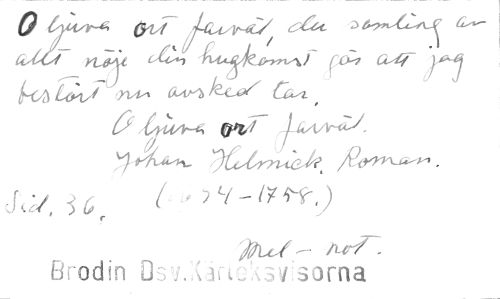 O ljuva ort farväl, du samling av
allt nöje din hugkomst gör att jag
bestört nu avsked tar,
O ljuva ort farväl.
Johan Helmick. Roman.
Sid. 36. (1694-1758.)
Mel-not.
Brodin Dsv.Kärleksvisorna